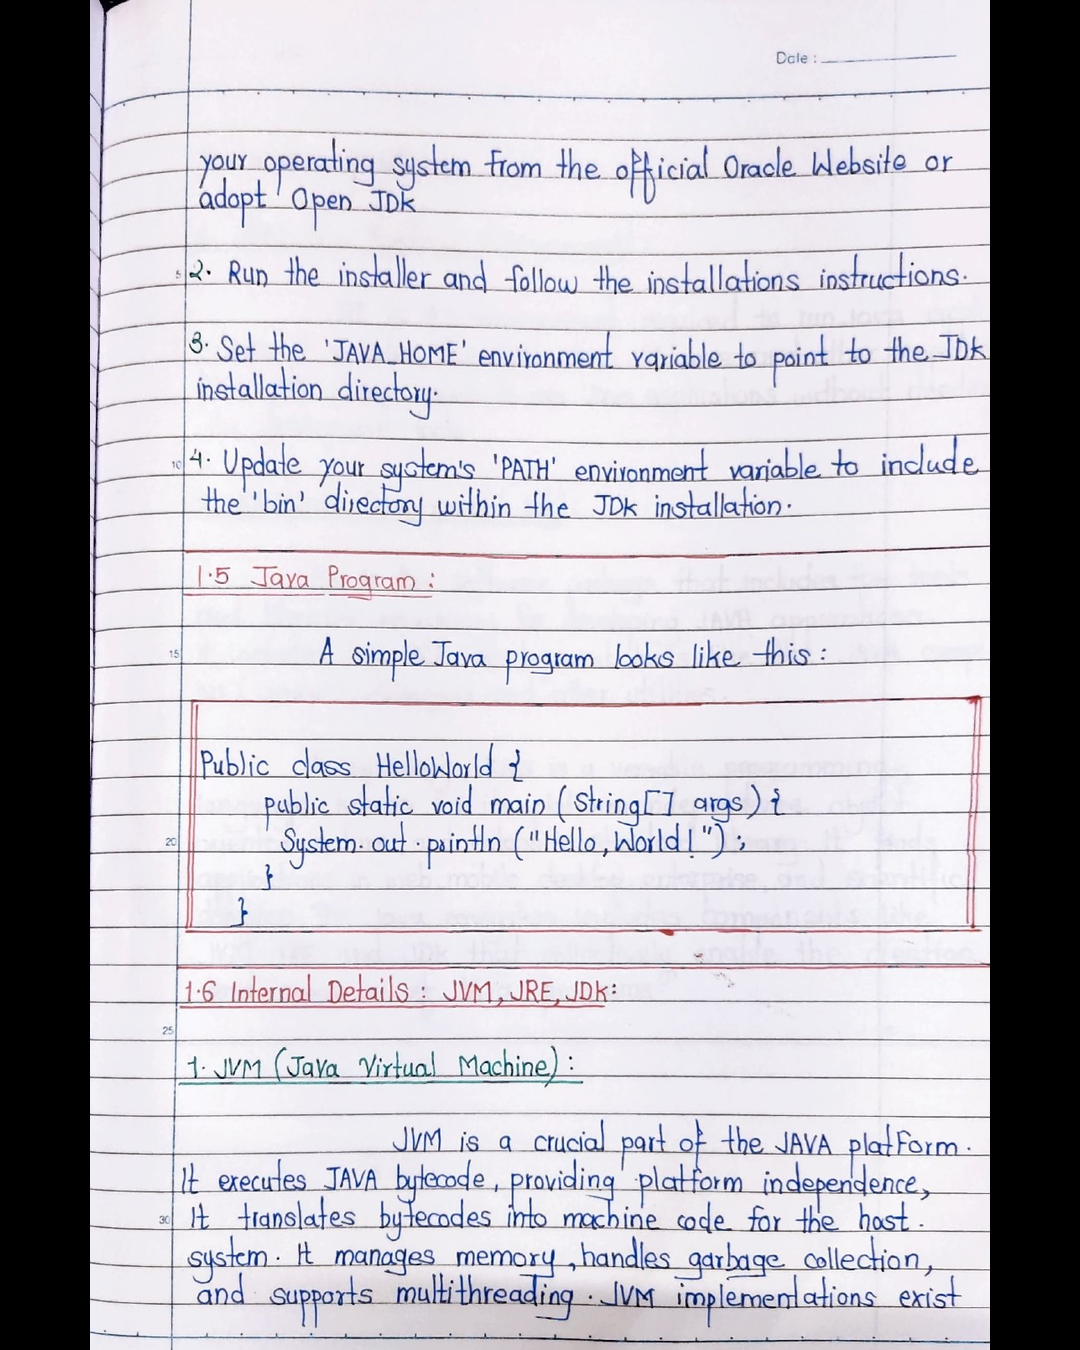 Date :
your operating system from the official Oracle Website or
adopt Open JDK
5 2. Run the installer and follow the installations instructions.
3. Set the 'JAVA_HOME' environment variable to point to the JDK
installation directory.
10 4. Update your system's 'PATH' environment variable to include
the 'bin' directory within the JDK installation.
1.5 Java Program :
15 A simple Java program looks like this :
Public class HelloWorld {
public static void main (String[] args) {
20 System. out . println ("Hello, World! ") ;
}
}
1.6 Internal Details : JVM, JRE, JDK:
25
1. JVM (Java Virtual Machine) :
JVM is a crucial part of the JAVA platform.
It executes JAVA bytecode, providing platform independence,
30 It translates bytecodes into machine code for the host.
system. It manages memory, handles garbage collection,
and supports multithreading. JVM implementations exist